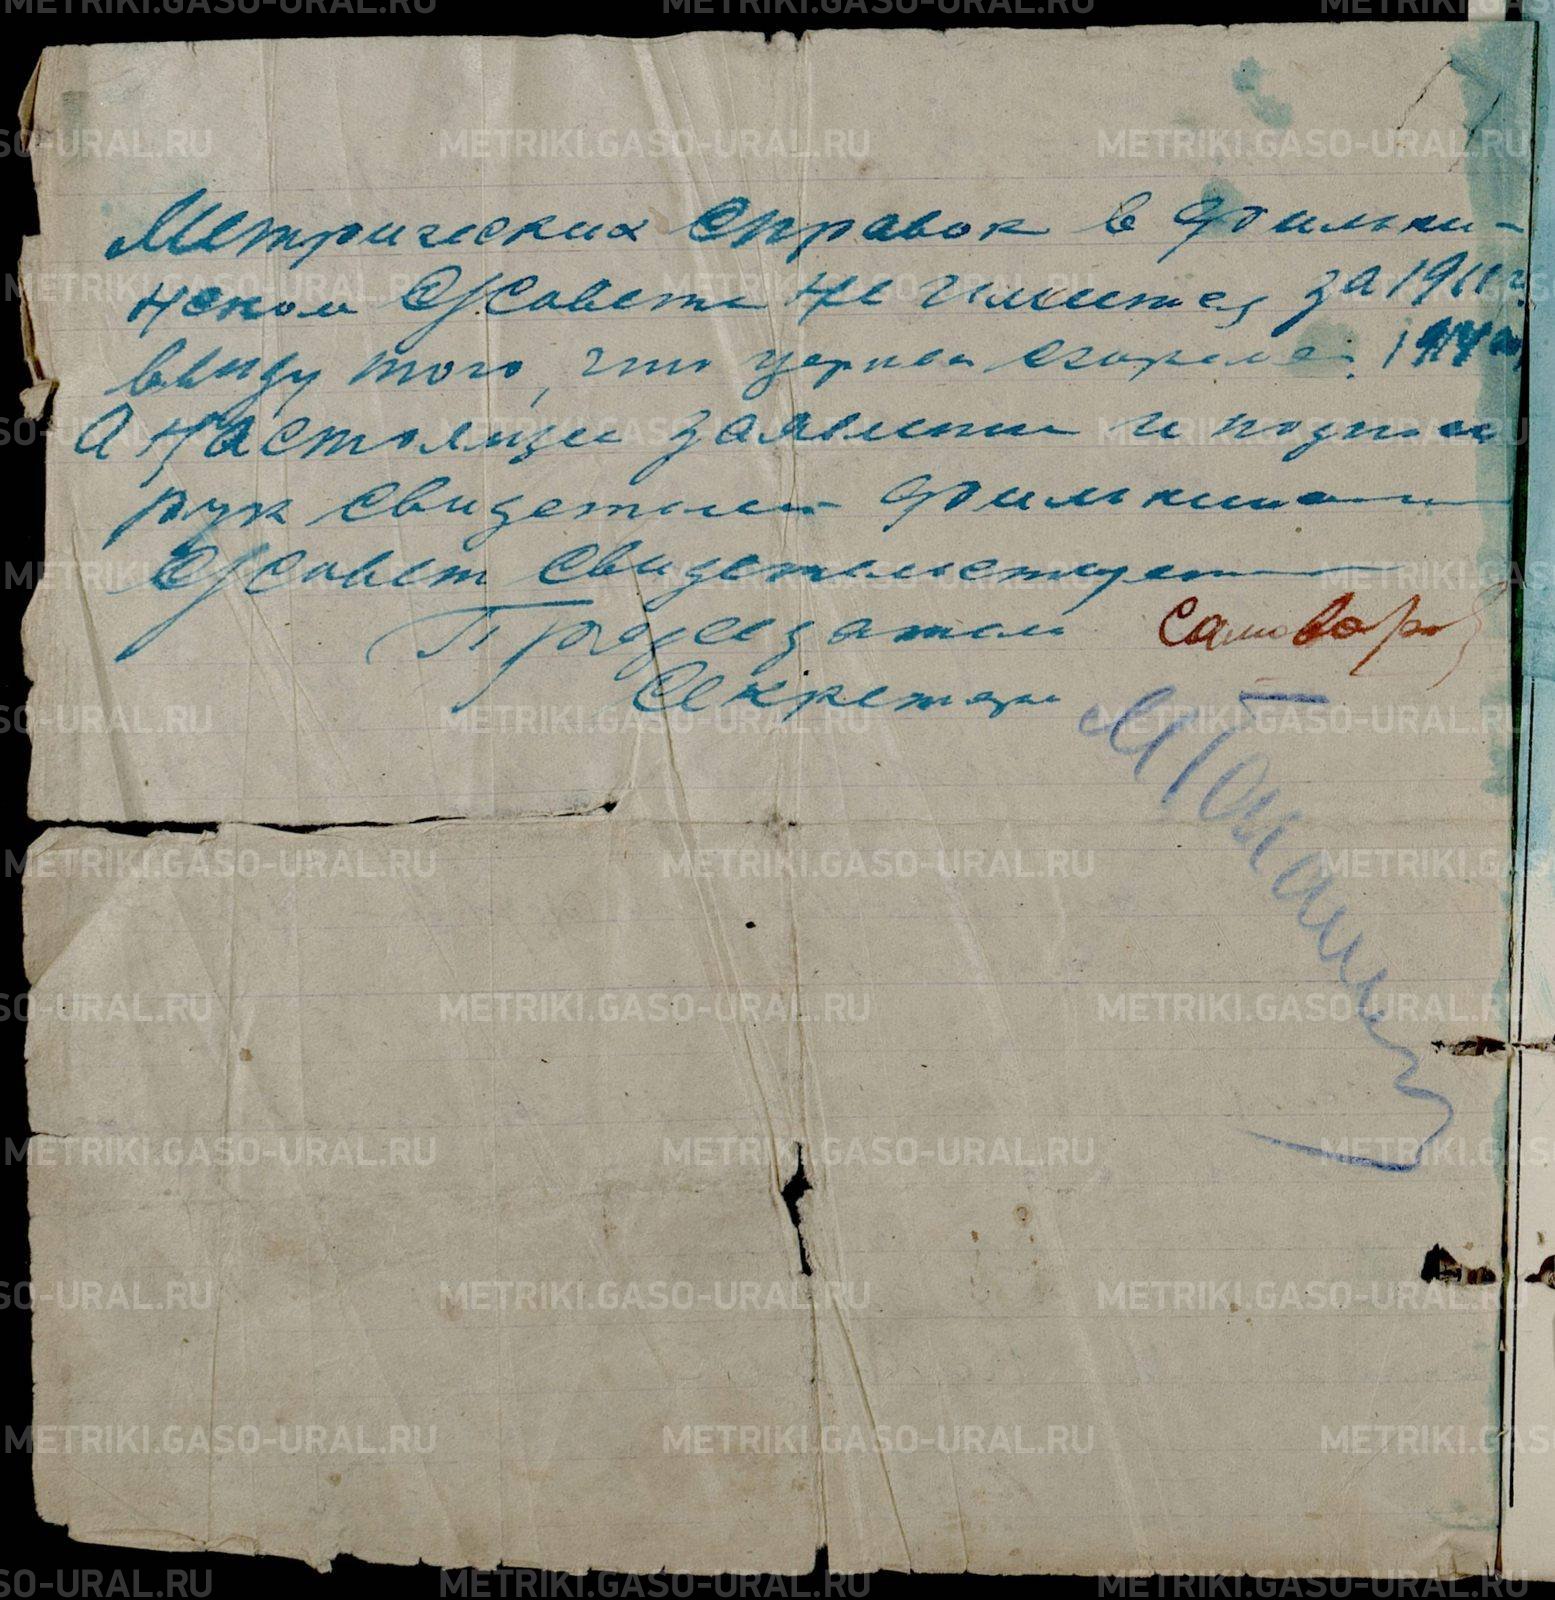 Метрических справок в Филькин-
ском С/Совете не имеется за 1911 г.
ввиду того, что церковь сгорела
а настоящее заявление и подписи
рук свидетелей Филькинский
С/Совет свидетельствует
Председатель Самоваров
Секретарь
METRIKI.GASO-URAL.RU